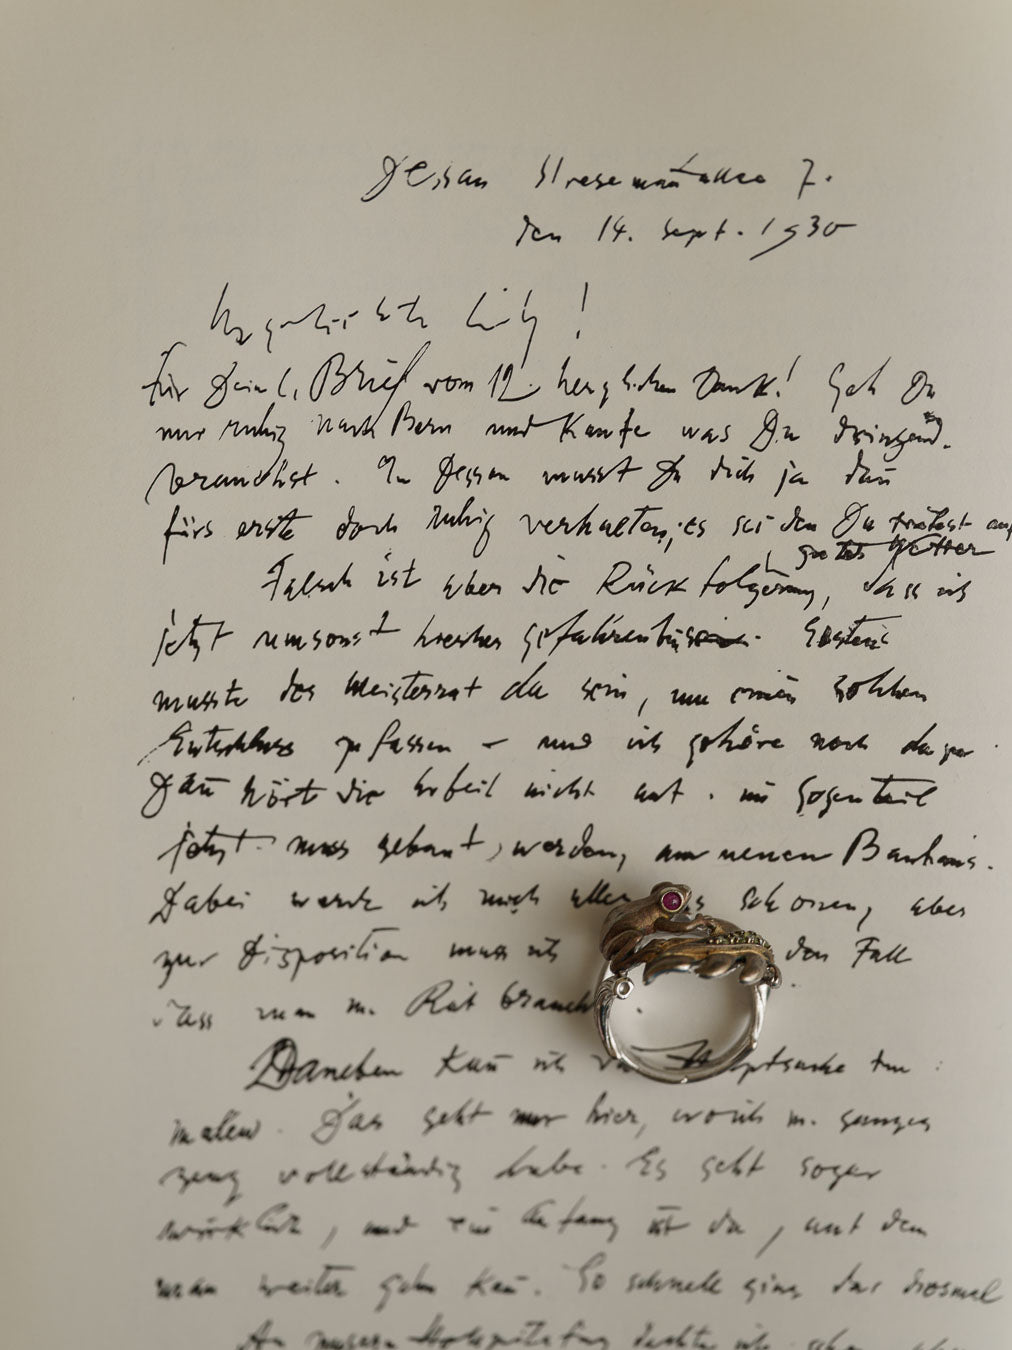 Dessau Stresemannallee 7.
den 14. Sept. 1930
Vielgeliebte Lily!
Für Dein l. Brief vom 12. herzlichen Dank! Geh Du
nur ruhig nach Bern und Kaufe was Du dringend
brauchst. In Dessau musst Du dich ja dañ
fürs erste doch ruhig verhalten, es sei den Du
gutes Wetter
Falsch ist aber die Rückfolgerung, dass ich
jetzt umsonst hierher gefahren bin. Erstens
musste der Meisterrat da sein, um einen solchen
Entschluss zu fassen – und ich gehöre noch dazu.
Dañ hört die Arbeit nicht auf. im Gegenteil
jetzt muss gebaut werden, am neuen Bauhaus.
Dabei werde ich mich schonen, aber
zur Disposition muss ich den Fall
dass man m. Rat braucht.
Daneben Kañ ich
malen. Das geht nur hier, wo ich m. ganzes
zeug vollständig habe. Es geht sogar
wirklich, und ein Anfang ist da, auf dem
man weiter gehn Kañ. So schnell ging das diesmal